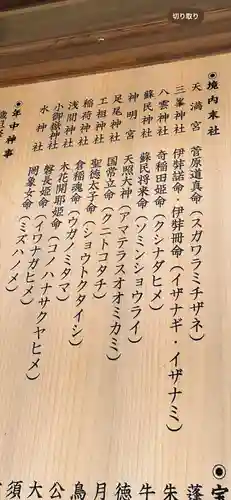 切り取り
◉境内末社
天満宮 菅原道真命(スガワラミチザネ)
三峯神社 伊弉諾命・伊弉冊命(イザナギ・イザナミ)
八雲神社 奇稲田姫命(クシナダヒメ)
蘇民神社 蘇民将来命(ソミンショウライ)
神明宮 天照大神(アマテラスオオミカミ)
足尾神社 国常立命(クニトコタチ)
工祖神社 聖徳太子命(ショウトクタイシ)
稲荷神社 倉稲魂命(ウガノミタマ)
浅間神社 木花開耶姫命(コノハナサクヤヒメ)
小御嶽神社 磐長姫命(イワナガヒメ)
水神社 罔象女命(ミズハノメ)
◉年中神事
◉宝
蓬
朱
牛
徳
月
鳥
公
大
須